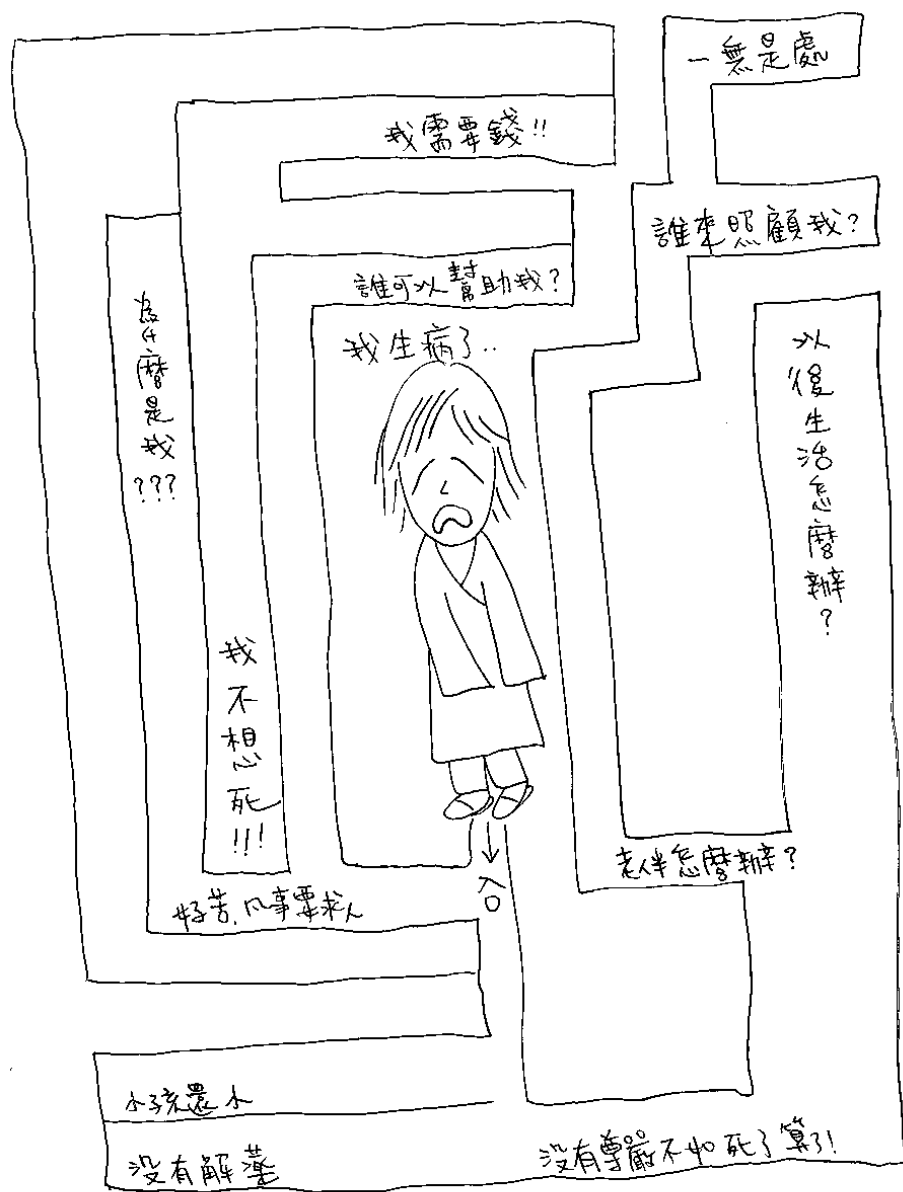 一無是處
我需要錢!!
誰來照顧我?
誰可以幫助我?
為什麼是我???
我生病了..
以後生活怎麼辦?
我不想死!!!
老伴怎麼辦?
入口
好苦,凡事要求人
小孩還小
沒有解藥
沒有尊嚴不如死了算了!